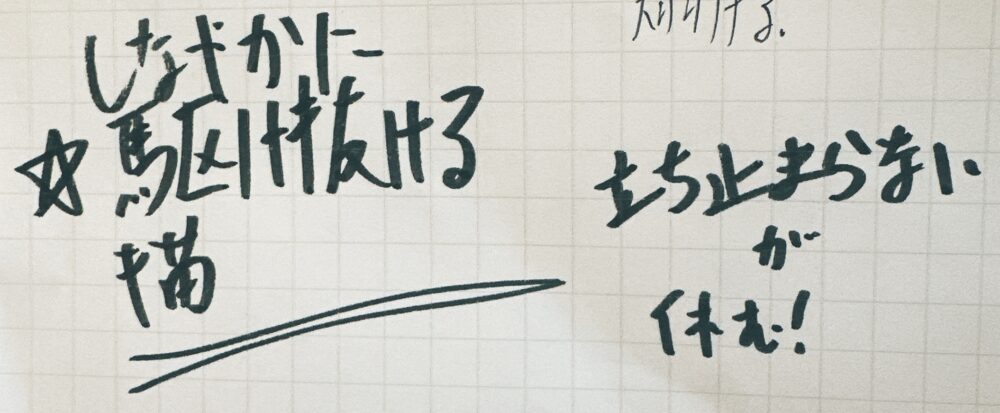 しなやかに
☆駆け抜ける
猫
立ち止まらない
が
休む!